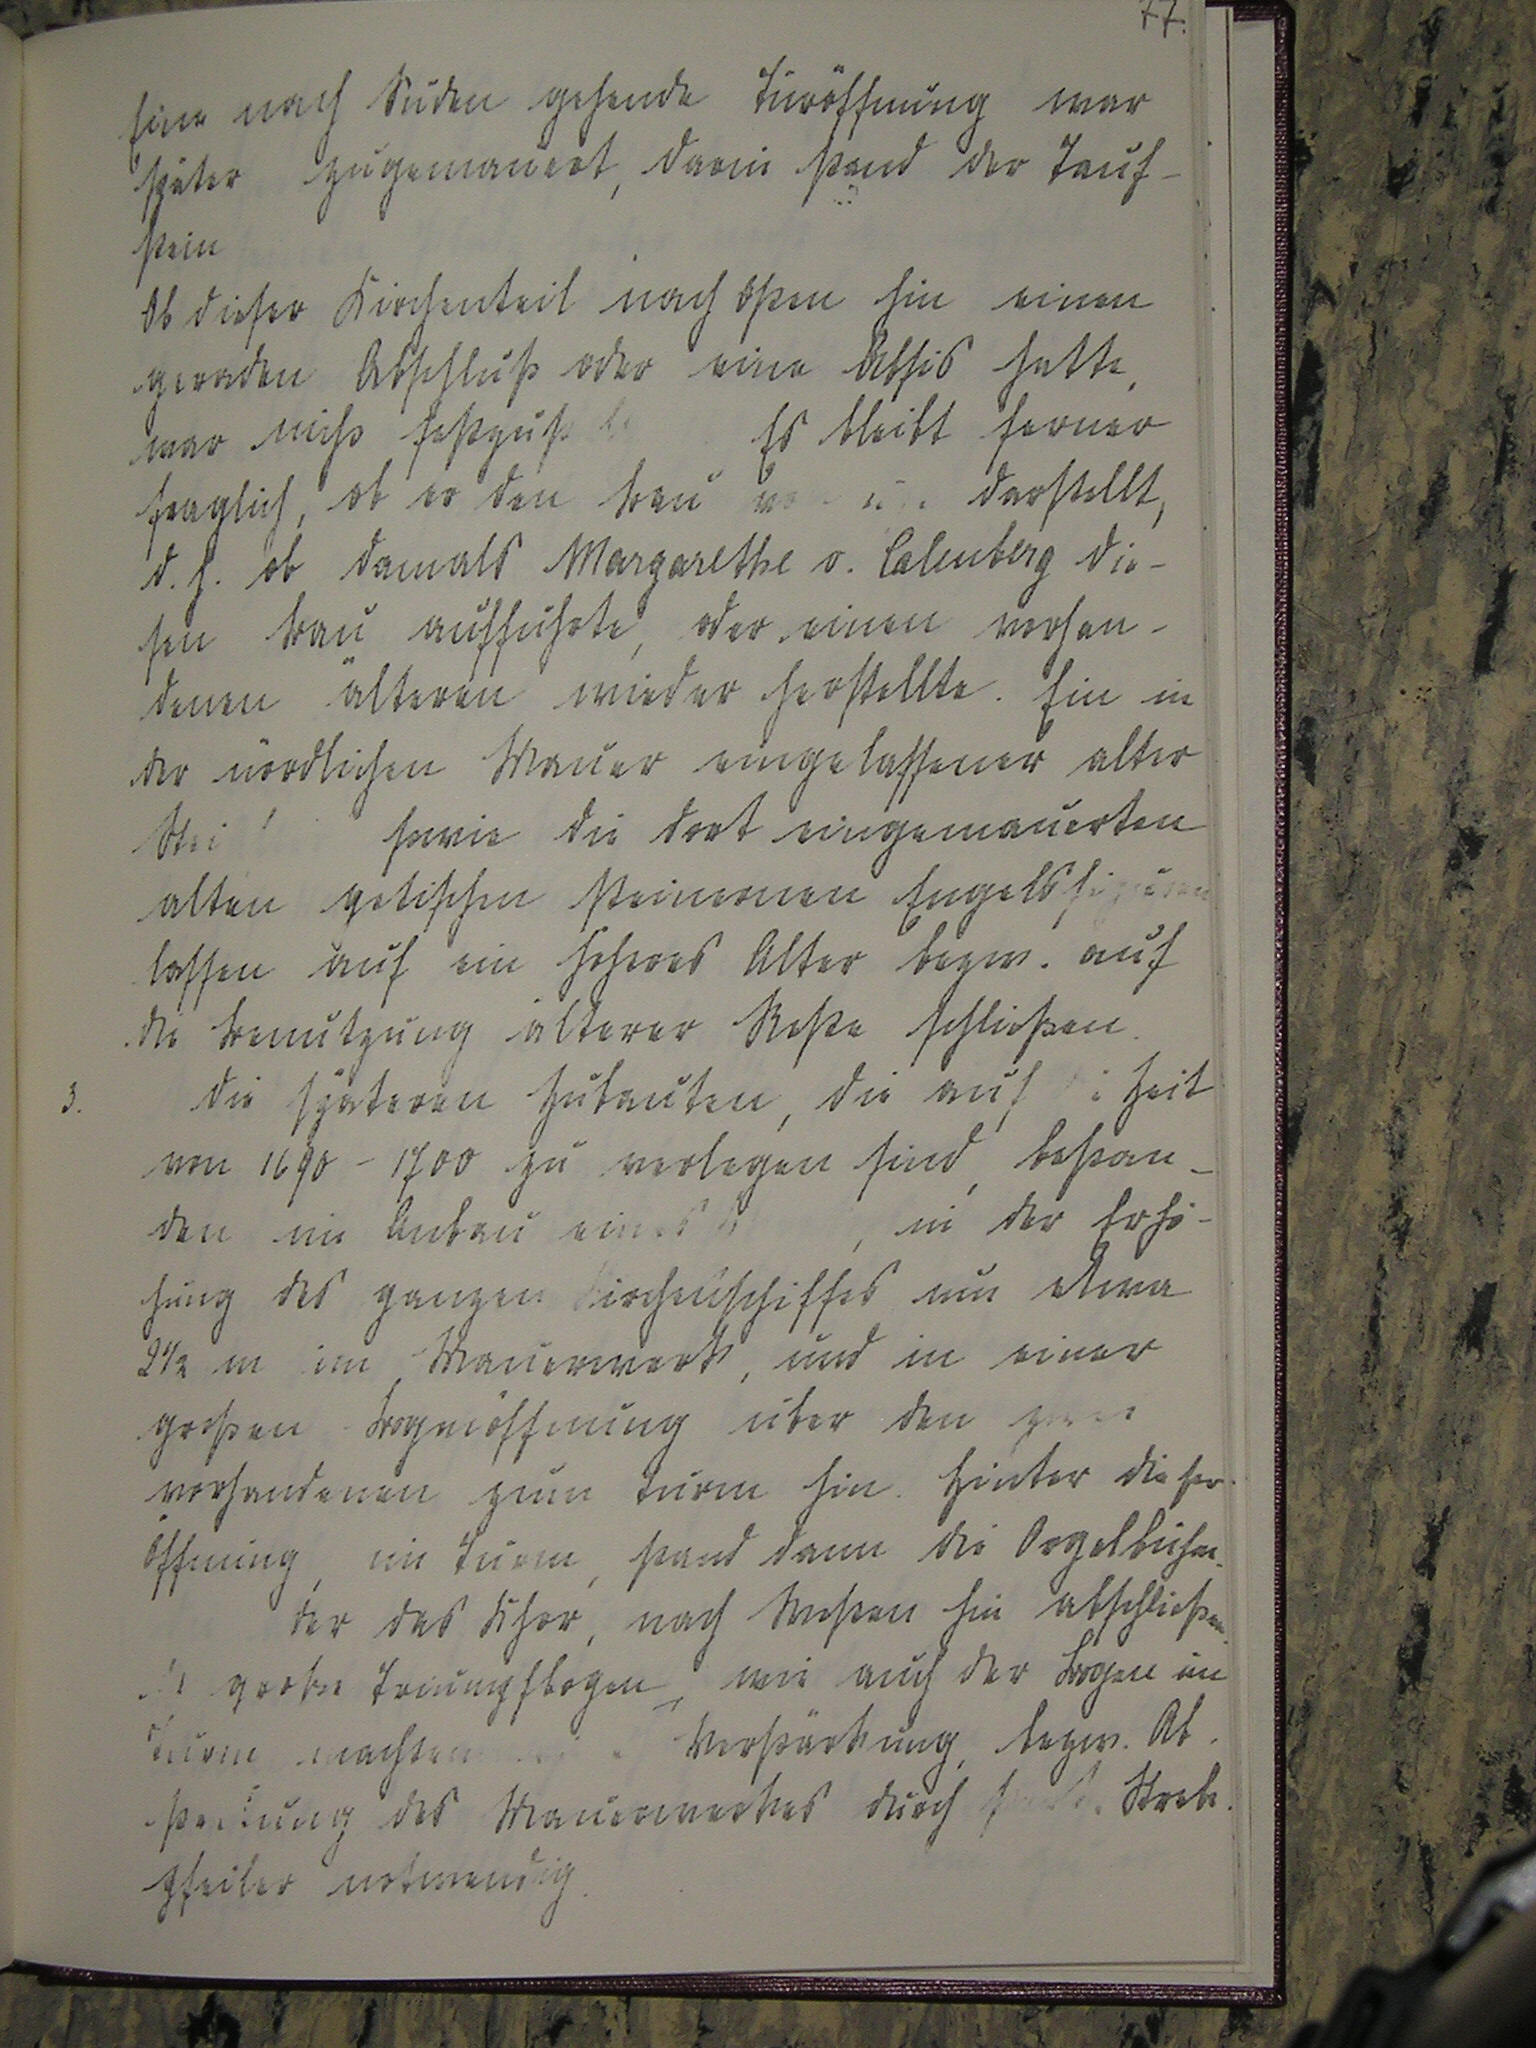 77.
Eine nach Süden gehende Türöffnung war
später zugemauert, darin stand der Tauf-
stein
Ob dieser Kirchenteil nach Osten hin einen
geraden Abschluß oder eine Absis hatte,
war nicht Es bleibt ferner
fraglich, ob er den Bau darstellt,
d. h. ob damals Margarethe v. Calenberg die-
sen Bau aufführte, oder einen vorhan-
denen älteren wieder herstellte. Ein in
der nördlichen Mauer eingelassener alter
sowie die dort eingemauerten
alten gotischen steinernen Engelsfiguren
lassen auf ein höheres Alter bezw. auf
die Benutzung älterer Reste schließen.
3. Die späteren Zubauten, die auf Zeit
von 1690 - 1700 zu verlegen sind, bestan-
den im Anbau eines , in der Erhö-
hung des ganzen Kirchenschiffes um etwa
2 1/2 m im Mauerwerk, und in einer
großen Bogenöffnung über den
vorhandenen zum Turm hin. Hinter dieser
Öffnung, im Turm, stand dann die Orgelbühne.
der das Chor, nach Westen hin abschließen
große Triumpfbogen, wie auch der Bogen im
Turm machten Verstärkung, bezw. Ab-
des Mauerwerkes durch Strebe-
pfeiler notwendig.